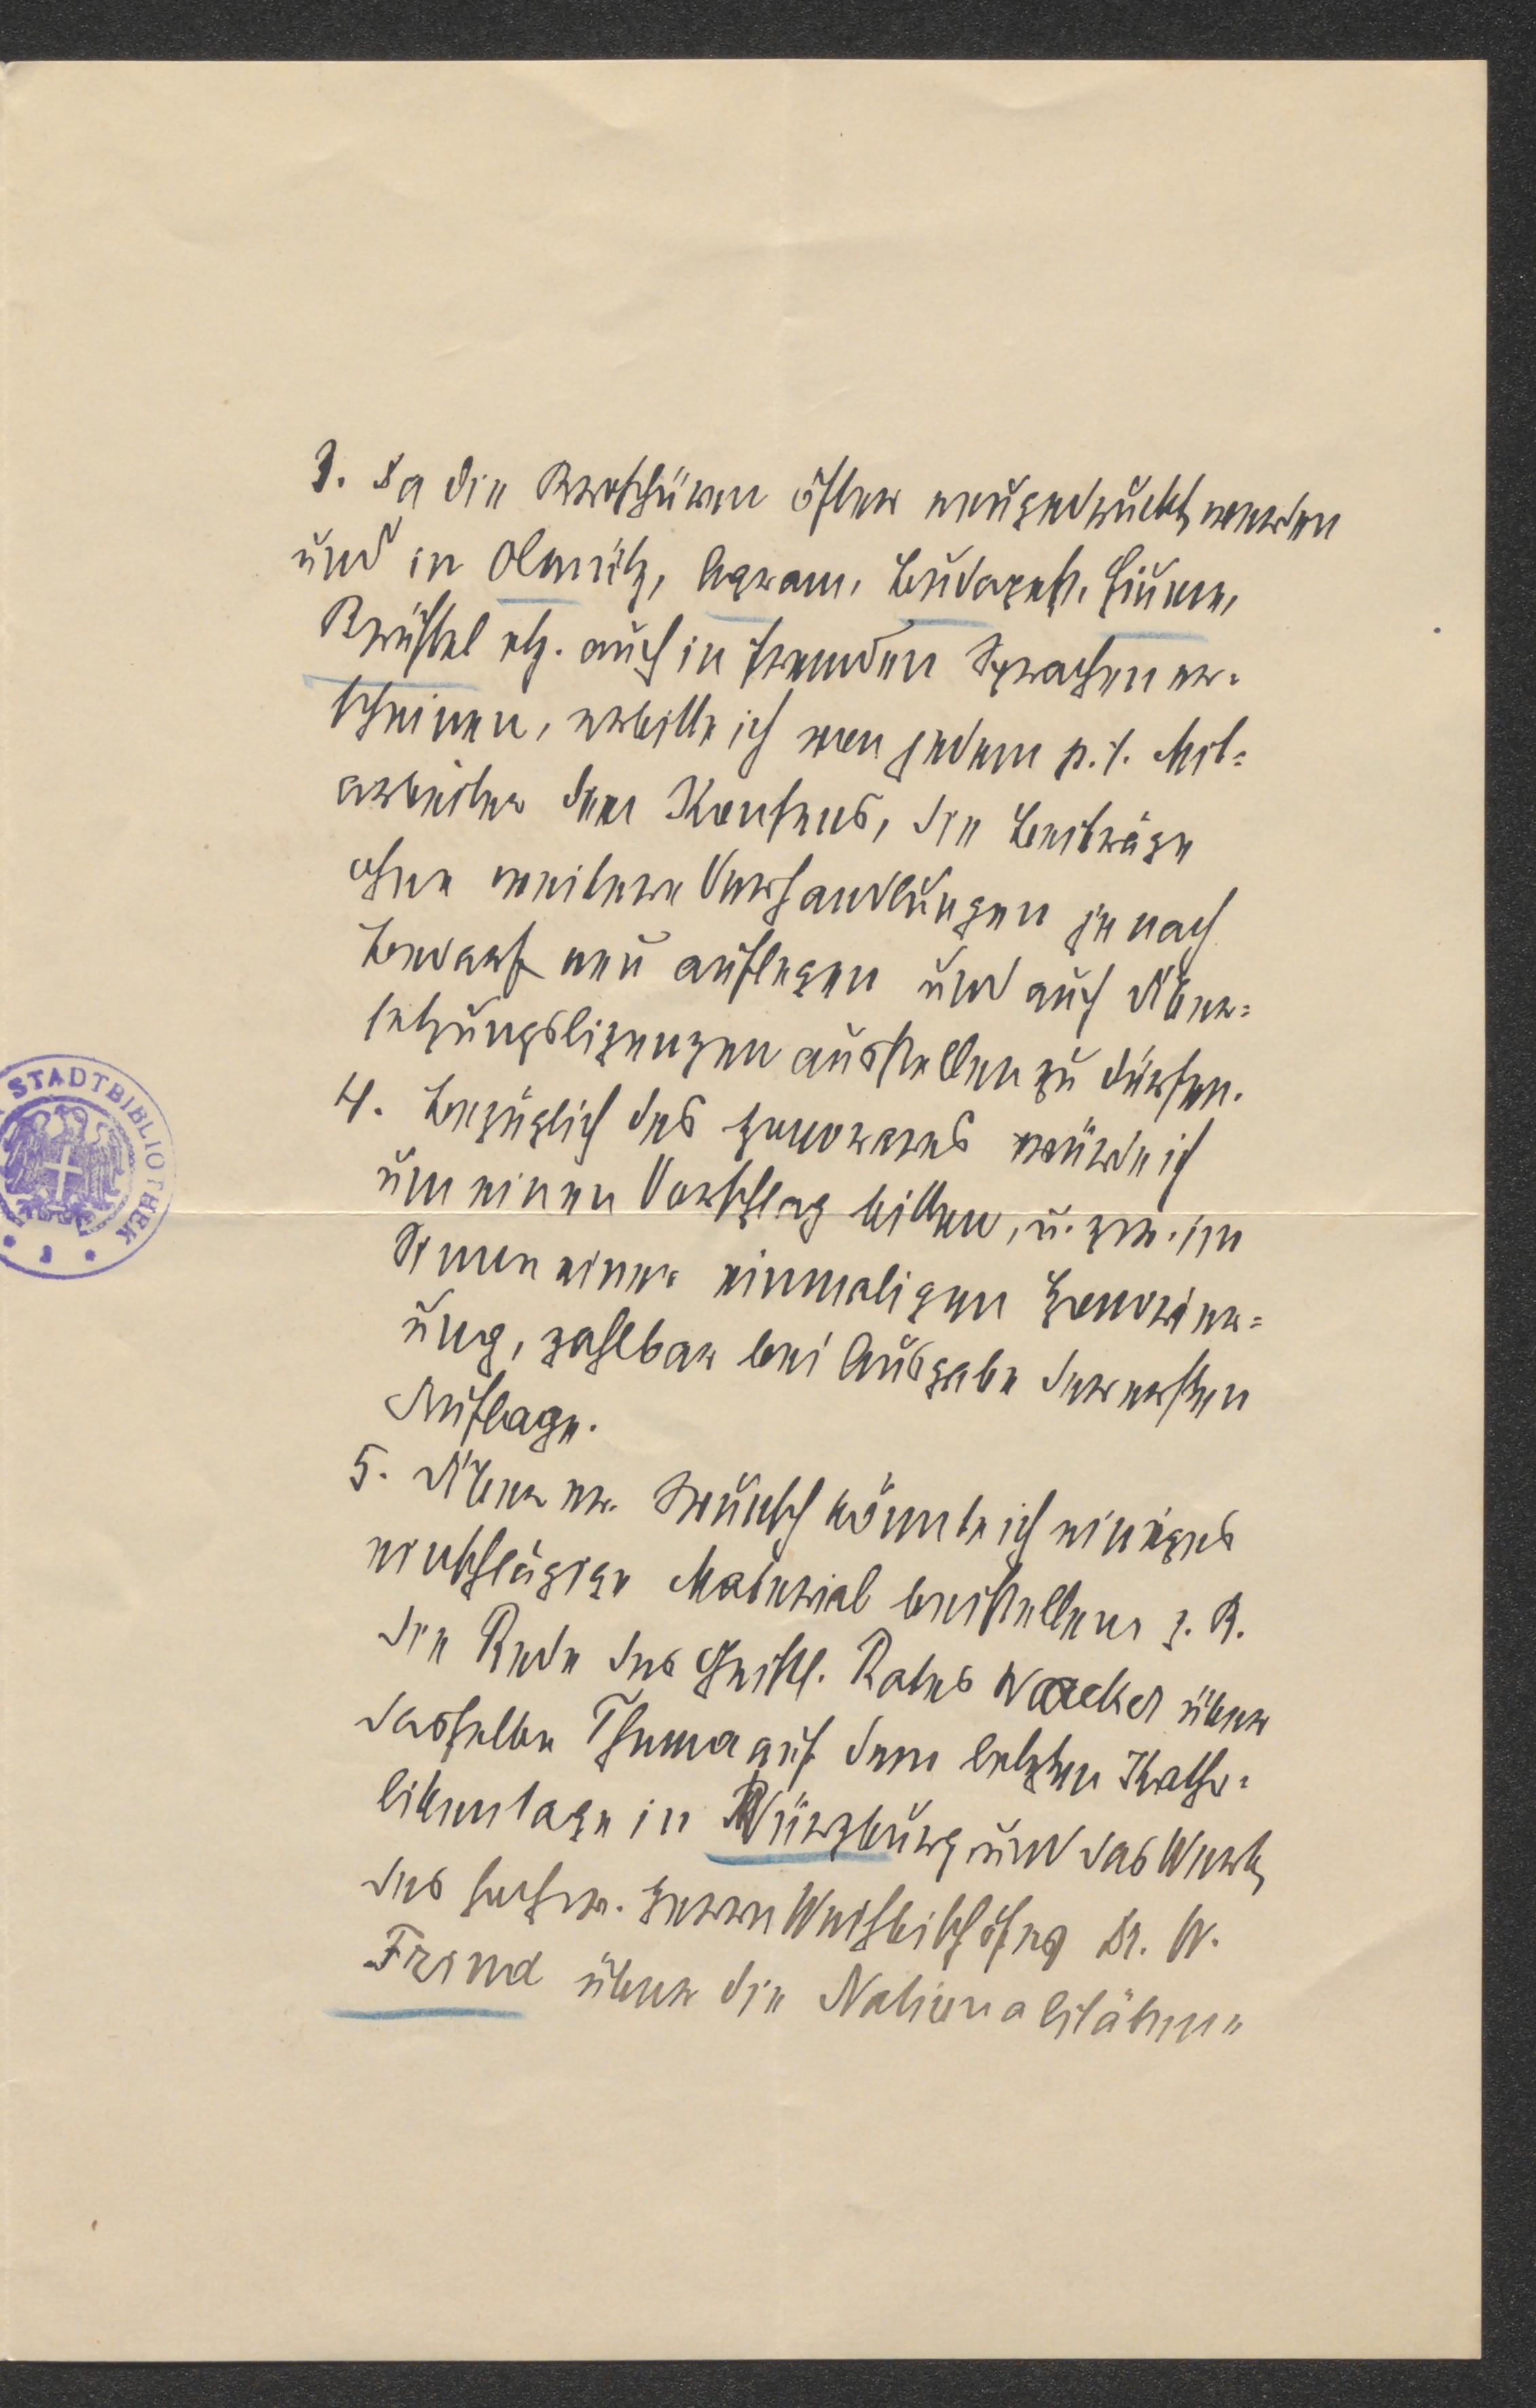 3. Da die Broschüren öfter neugedruckt werden
und in Olmütz, Agram, Budapest, Fiume,
Brüssel etz. auch in fremden Sprachen er=
scheinen, erbitte ich von jedem p. t. Mit=
arbeiter den Konsens, die Beiträge
ohne weitere Verhandlungen je nach
Bedarf neu auflegen und auch Über=
setzungslizenzen ausstellen zu dürfen.
4. Bezüglich des Honorares würde ich
um einen Vorschlag bitten, u. zw. im
Sinne einer einmaligen Honorier=
ung, zahlbar bei Ausgabe der ersten
Auflage.
5. Über ev. Wunsch könnte ich einiges
einschlägige Material beistellen z. B.
die Rede des Geistl. Rates Wacker über
dasselbe Thema auf dem letzten Katho=
likentage in Würzburg und das Werk
des hochw. Herrn Weihbischofes Dr. W.
Frind über die Nationalitäten"
STADTBIBLIOTHEK